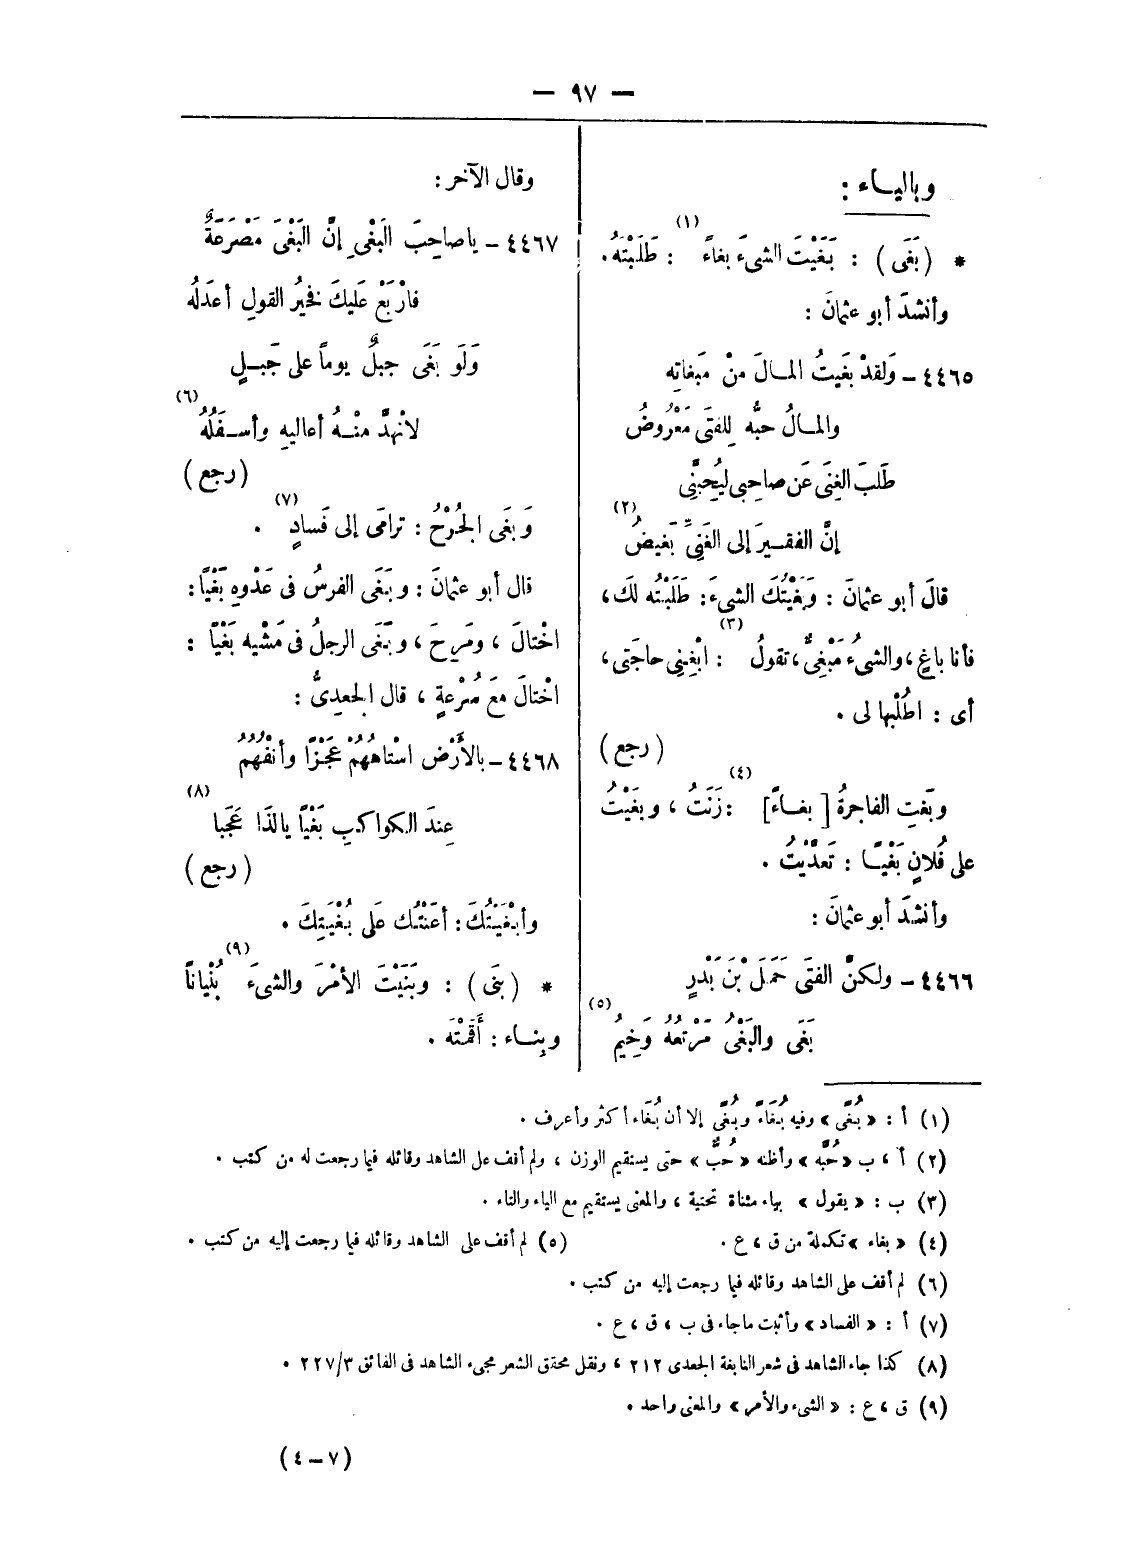 — ٩٧ —
وباليــاء :
* (بَغَى) : بَغَيْتَ الشىءَ بغاءً (١) : طَلَبْتَهُ .
وأنشدَ أبو عثمانَ :
٤٤٦٥ – وَلقدْ بغَيتُ المــالَ منْ مَبغاتِه
والمــالُ حبُّه لِلفتَى مَعْرُوضُ
طَلَبَ الغِنَى عَن صاحِبى ليُحِبَّنِى
إنَّ الفقــيرَ إلى الغَنِىِّ بَغيضُ (٢)
قالَ أبو عثمانَ : وَبَغَيْتُكَ الشىءَ : طَلَبْتُه لكَ ،
فأنا باغٍ ، والشىءُ مَبْغِىٌّ ، تقولُ (٣) : ابْغِنِى حاجَتى ،
أى : اطْلُبْها لى .
(رجع)
وبَغتِ الفاجرةُ [ بغــاءً ] (٤) : زَنَتْ ، وبغَيْتُ
على فُلانٍ بَغْيــًا : تَعَدَّيْتُ .
وأنشدَ أبو عثمانَ :
٤٤٦٦ – ولكنَّ الفتَى حَمَلَ بْنَ بَدْرٍ
بَغَى والبَغْىُ مَرْتعُهُ وَخِيمُ (٥)
وقال الآخر :
٤٤٦٧ – ياصاحِبَ البَغْىِ إنَّ البَغْىَ مَصْرَعَةٌ
فارْبَعْ عَليكَ فخيرُ القولِ أعدَلُه
وَلَو بَغَى جبلٌ يوماً على جَبــلٍ
لانْهدَّ منْــهُ أعاليهِ وأسـفَلُهُ (٦)
(رجع)
وَبغَى الجُرْحُ : ترامَى إلى فَسادٍ (٧) .
قال أبو عثمانَ : وبَغَى الفرسُ فى عَدْوِه بَغْيًا :
اخْتالَ ، ومَرِحَ ، وبَغَى الرجلُ فى مَشْيه بَغْيًا :
اخْتالَ معَ سُرْعةٍ ، قال الجعدِىُّ :
٤٤٦٨ – بالأَرْضِ اسْتاهُهُمْ عَجْزًا وأنْفُهُمُ
عِندَ الكواكبِ بَغْيًا يالَذَا عَجَبا (٨)
(رجع)
وأبْغَيْتُكَ : أعَنْتُك عَلَى بُغْيَتِكَ .
* (بنَى) : وبَنَيْتَ الأمْرَ والشىءَ (٩) بُنْيانًا
وبِنــاء : أَقَمْتَه .
(١) أ : « بُغًى » وفيه بُغَاءً وبُغًى إلا أن بُغَاء أكثر وأعرف .
(٢) أ ، ب « حُبَّه » وأظنه « حُبٌّ » حتى يستقيم الوزن ، ولم أقف على الشاهد وقائله فيما رجعت له من كتب .
(٣) ب : « يقول » بياء مثناة تحتية ، والمعنى يستقيم مع الياء والتاء .
(٤) « بغاء » تكملة من ق ، ع . (٥) لم أقف على الشاهد وقائله فيما رجعت إليه من كتب .
(٦) لم أقف على الشاهد وقائله فيما رجعت إليه من كتب .
(٧) أ : « الفساد » وأثبت ماجاء فى ب ، ق ، ع .
(٨) كذا جاء الشاهد فى شعر النابغة الجعدى ٢١٢ ، ونقل محقق الشعر مجىء الشاهد فى الفائق ٢٢٧/٣ .
(٩) ق ، ع : « الشىء والأمر » والمعنى واحد .
(٧ – ٤)